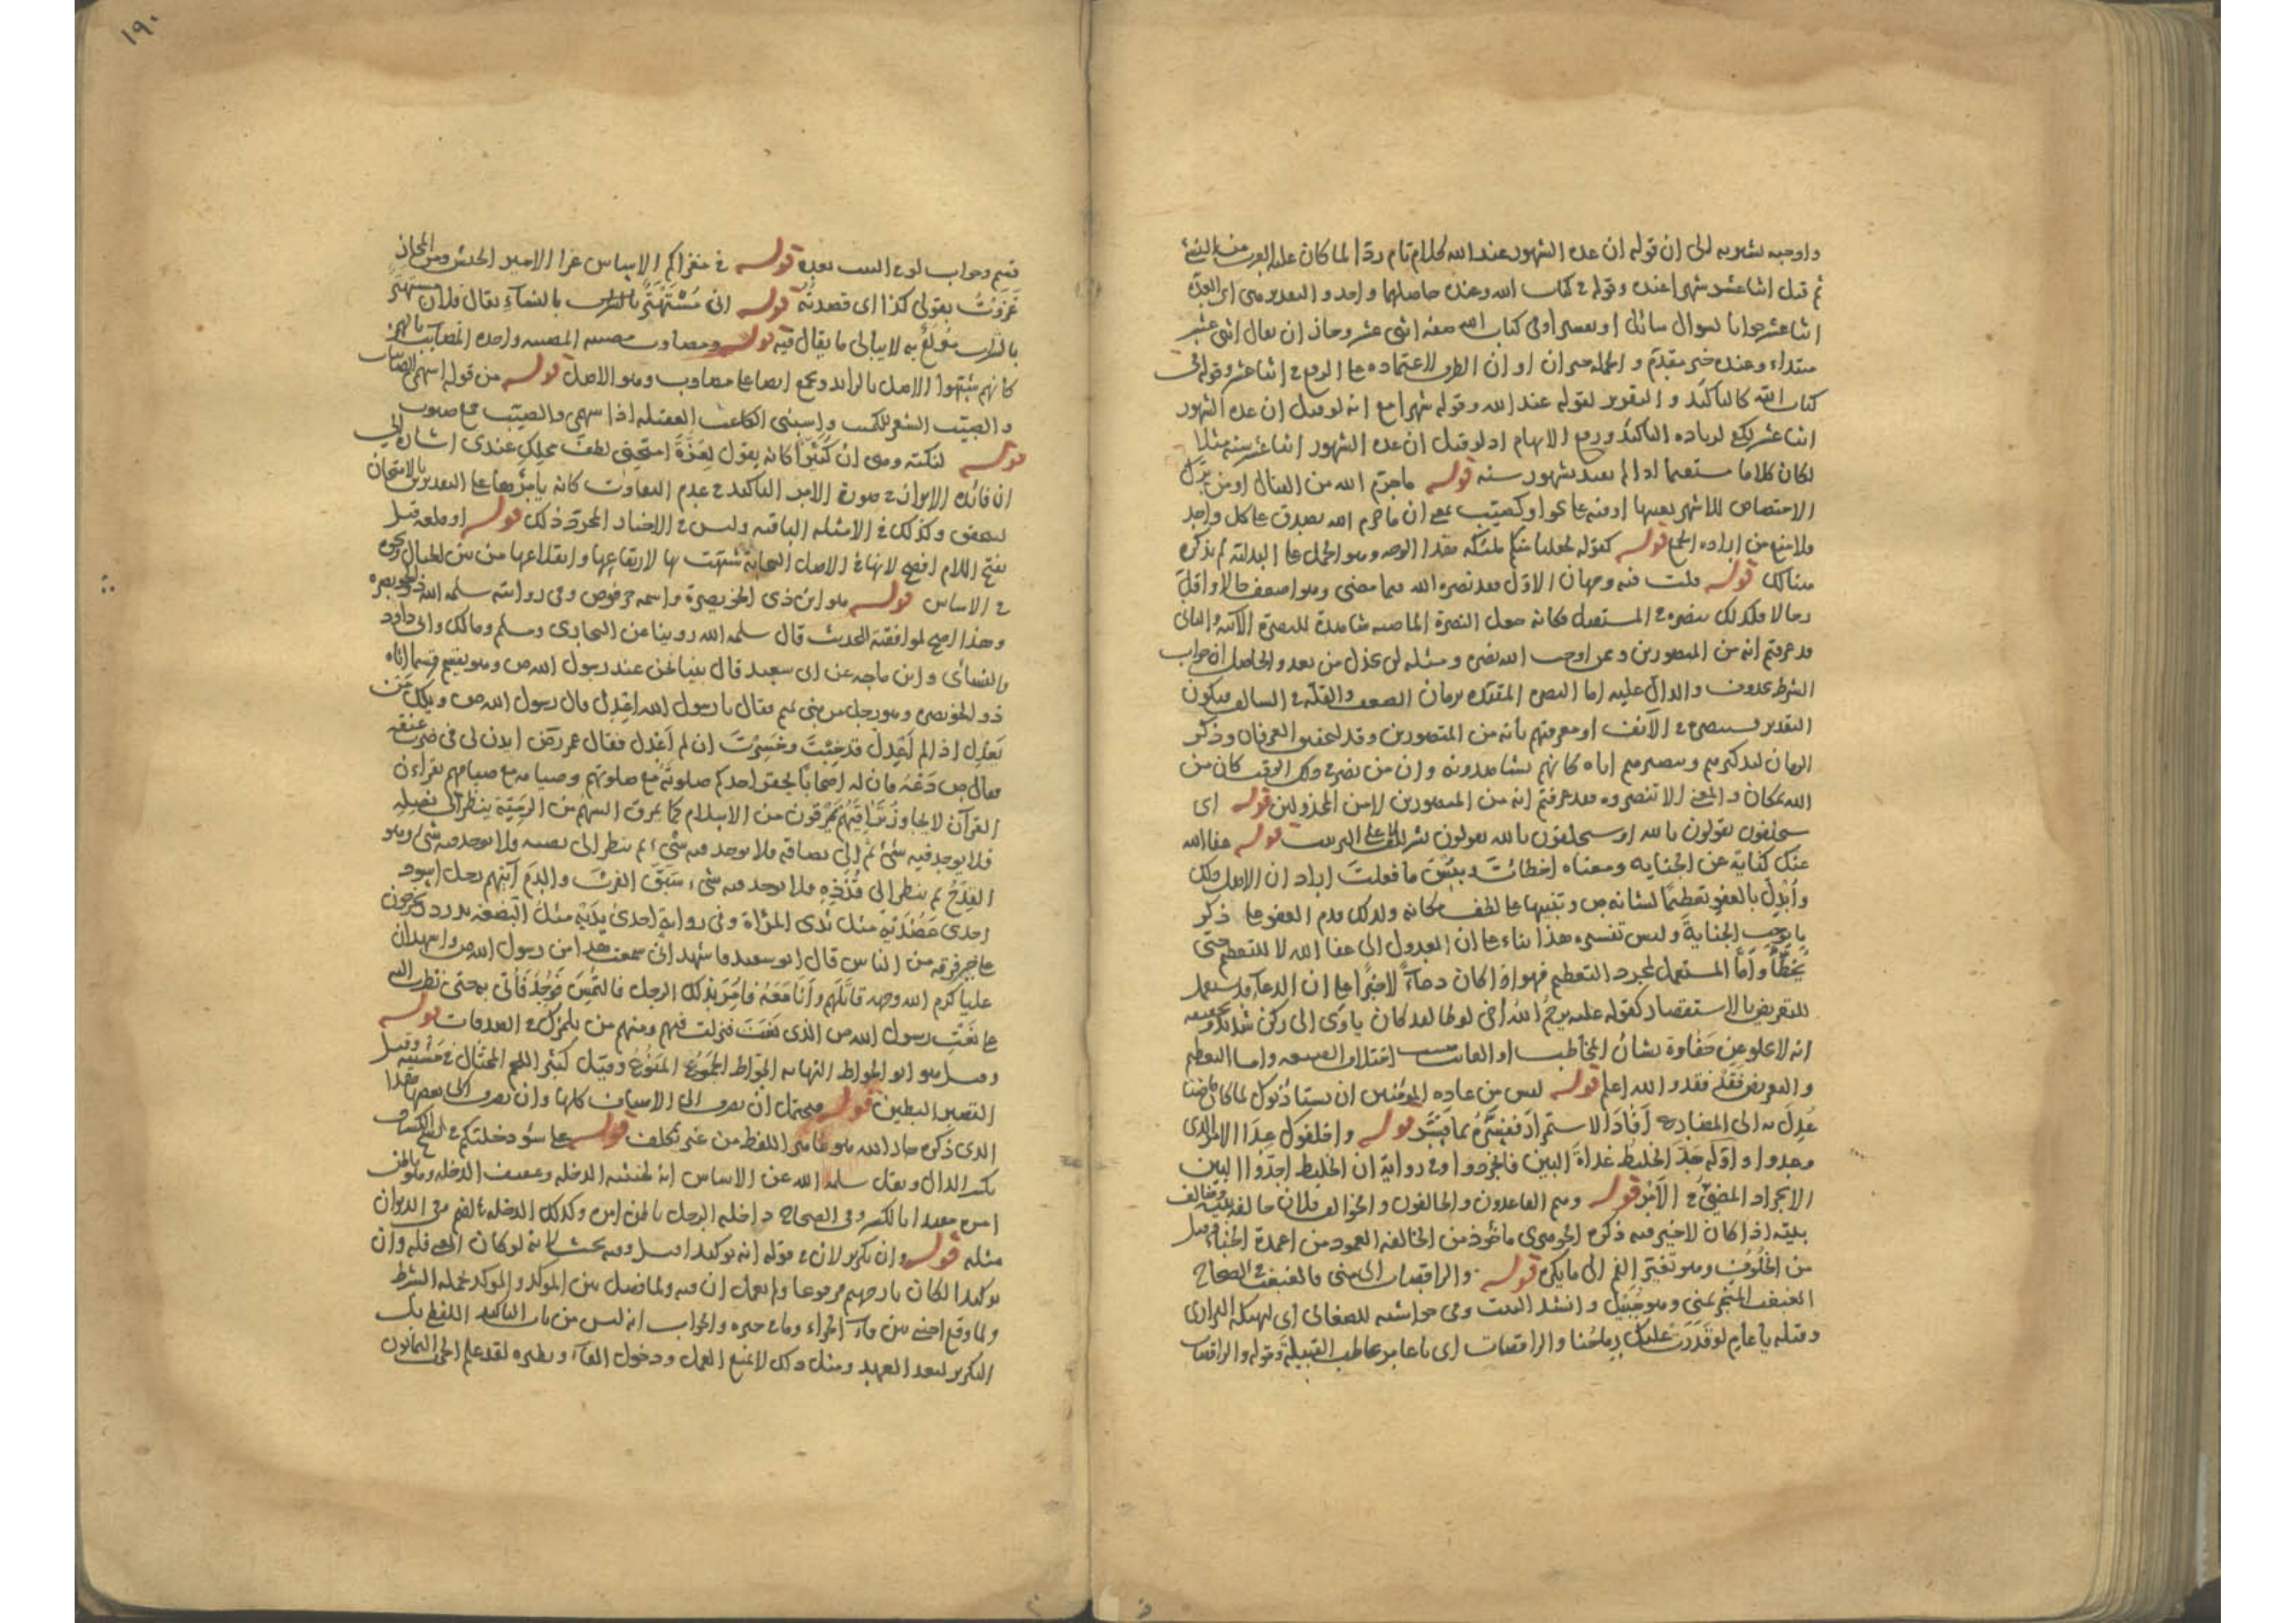 واوجبه لشهر به الى ان قوله ان عدة الشهور عند الله كلام تام ردا لما كان عليه العرب من النسئ
ثم قيل اثنا عشر شهرا عنده وقوله في كتاب الله وعنده حاصلهما واحد و التقدير هي اي العدة
اثنا عشر جوابا لسوال سائل او تفسير اوفى كتاب الله صفة اثنى عشر وجاز ان يقال اثنى عشر
مبتداء وعنده خبر مقدم و الجملة خبر ان او ان الظرف لاعتماده على الرفع في اثنا عشر وقوله في
كتاب الله كالتاكيد و التقرير لقوله عند الله وقوله شهرا مع انه لو قيل ان عدة الشهور
اثنا عشر لكفى لزياده التاكيد ورفع الابهام اذ لو قيل ان عدة الشهور اثنا عشر سنة مثلا
لكان كلاما مستقيما اذا لم يعتد بشهور سنه قوله ما حرم الله من القتال او من ترك
الاختصاص للاشهر بعينها
ولا منع من اراده الجمع قوله كقوله لجعلنا منكم ملئكة هذا الوجه وهو الحمل على البدلية لم يذكره
هنالك قوله قلت فيه وجهان الاول فقد نصره الله فيما مضى وهو اضعف حالا واقل
رجالا فكذلك ينصره في المستقبل فكانه جعل النصرة الماضيه شاهدة للنصرة الآتيه والثاني
قد عرفتم انه من المنصورين وممن اوجب الله نصره و مثله لن يخذل من بعد والحاصل ان جواب
الشرط محذوف والدال عليه اما النصره المقيده بزمان الضعف والقلة في السالف فيكون
التقدير فسينصره في الآنف او معرفتهم بانه من المنصورين وقد لتحقيق العرفان وذكر
الزمان لتذكيرهم وتبصيرهم اياه كانهم يشاهدونه وان من نصره في ذلك الوقت كان من
الله بمكان والمعنى الا تنصروه فقد عرفتم انه من المنصورين لا من المخذولين قوله اى
سيحلفون يقولون بالله او سيحلفون بالله يقولون قوله عفا الله
عنك كناية عن الجنايه ومعناه اخطأت وبئس ما فعلت اراد ان الاصل ذلك
وأبدل بالعفو تعظيما لشانه ص وتنبيها على لطف مكانه ولذلك قدم العفو على ذكر
ما يوجب الجناية وليس تفسيره هذا بناء على ان العدول الى عفا الله لا للتعظيم حتى
يخطأ وأما المستعمل لمجرد التعظيم فهو اذا كان دعاء لا خبرا على ان الدعاء قد يستعمل
للتعريض بالاستقصار كقوله عليه يرحم الله اخى لوطا لقد كان ياوى الى ركن شديد
انه لا يخلو عن حفاوة بشان المخاطب او الغائب
والله اعلم قوله ليس من عاده المؤمنين ان يستاذنوك لما كان
عدل به الى المضارع أفاد الاستمرار ففسره بما فسر قوله واخلفوك عدا الامر الذى
وعدوا واوله جد الخليط غداة البين فانجردوا وفي رواية ان الخليط اجدوا البين
الانجراد المضي في الامر قوله وهم القاعدون والخالفون والخوالف فلان خالفه اهل بيته وخالف
بيته اذا كان لا خير فيه ذكره الجوهرى ماخوذ من الخالفة العمود من اعمدة الخباء وقيل
من الخلوف وهو تغير الفم الى ما يكره قوله والراقصات الى منى فالغبغب في الصحاح
الغبغب المنحر بمنى وهو جبيل وانشد البيت وفى حواشيه للصغانى اى
وقتله يا عام لو قدرت عليك رماحنا والراقصات اى يا عامر خاطب القبيلة وقوله والراقصات
١٩٠
قسم وجواب لو في البيت بعده قوله في مغزاكم الاساس غزا الامير الجيش ومن المجاز
غزوت بقولى كذا اى قصدته قوله انى مستهتر بالنساء يقال فلان مستهتر
بالشراب مولع به لا يبالى ما يقال فيه قوله ومصاوب مصيبه المصيبه واحدة المصائب بالهمز
كانهم شبهوا الاصل بالزائد ويجمع ايضا على مصاوب وهو الاصل قوله من قوله اسهمى الصائبات
والصيب الشعر للكميت
قوله لنكتة وهى ان كثيرا كانه يقول لعزة امتحنى لطف محلك عندى اشارة الى
ان فائدة الايراد في صورة الامر التاكيد في عدم التفاوت كانه يأمرها بالامتحان على التقديرين
ليتحقق وكذلك في الامثله الباقيه وليس في الاخبار المجرد ذلك قوله او قلعه قيل
بفتح اللام افصح لانها في الاصل السحابة شبهت بها لارتفاعها وانقلاعها من بين الجبال ونحوه
في الاساس قوله هو ابن ذى الخويصرة واسمه حرقوص وفى روايته سلمه الله ذو الخويصره
وهذا اصح لموافقته الحديث قال سلمه الله روينا عن البخارى ومسلم ومالك وابى داود
والنسائى وابن ماجه عن ابى سعيد قال بينا نحن عند رسول الله ص وهو يقسم قسما اتاه
ذو الخويصره وهو رجل من بنى تميم فقال يا رسول الله اعدل قال رسول الله ص ويلك من
يعدل اذا لم أعدل قد خبت وخسرت ان لم أعدل فقال عمر رض ايذن لى فى ضرب عنقه
فقال ص دعه فان له اصحابا يحقر احدكم صلوته مع صلوتهم وصيامه مع صيامهم يقراءون
القرآن لا يجاوز تراقيهم يمرقون من الاسلام كما يمرق السهم من الرمية ينظر الى نصله
فلا يوجد فيه شئ ثم الى رصافه فلا يوجد فيه شىء ثم ينظر الى نضيه ولا يوجد فيه شى وهو
القدح ثم ينظر الى قذذه فلا يوجد فيه شىء سبق الفرث والدم آيتهم رجل اسود
احدى عضديه مثل ثدى المرأة وفى رواية احدى يديه مثل البضعة تدردر يخرجون
على خير فرقه من الناس قال ابو سعيد فاشهد انى سمعت هذا من رسول الله ص واشهد ان
عليا كرم الله وجهه قاتلهم وأنا معه فأمر بذلك الرجل فالتمس فوجد فأتى به حتى نظرت اليه
على نعت رسول الله ص الذى نعت فنزلت فيهم ومنهم من يلمزك في الصدقات قوله
وقيل هو ابو الجواظ النهايه الجواظ الجموع المنوع وقيل كثير اللحم المختال في مشيه وقيل
القصير البطين قوله فيحتمل ان يصرف الى الاصناف كلها وان يصرف الى بعضها هذا
الذى ذكره جار الله هو ظاهر اللفظ من غير تكلف قوله على سؤ دخلتكم في نسخ الكشاف
بكسر الدال ونقل سلمه الله عن الاساس انه لخبيث الدخله وعفيف الدخله وهو باطن
امره مقيدا بالكسر وفى الصحاح داخلة الرجل باطن امره وكذلك الدخله بالضم وفى الديوان
مثله قوله وان تكرير لان في قوله انه توكيدا قيل وفيه بحث لانه لو كان المعنى فله وان
توكيدا لكان نار جهنم مرفوعا ولم يعمل ان فيه ولما فصل بين الموكد والموكد بجملة الشرط
ولما وقع اجنبى بين فاء الجزاء وما في حيزه والجواب انه ليس من باب التاكيد اللفظى بل
التكرير لبعد العهد ومثل ذلك لا يمنع العمل ودخول الفاء ونظيره لقد علم الحى اليمانون